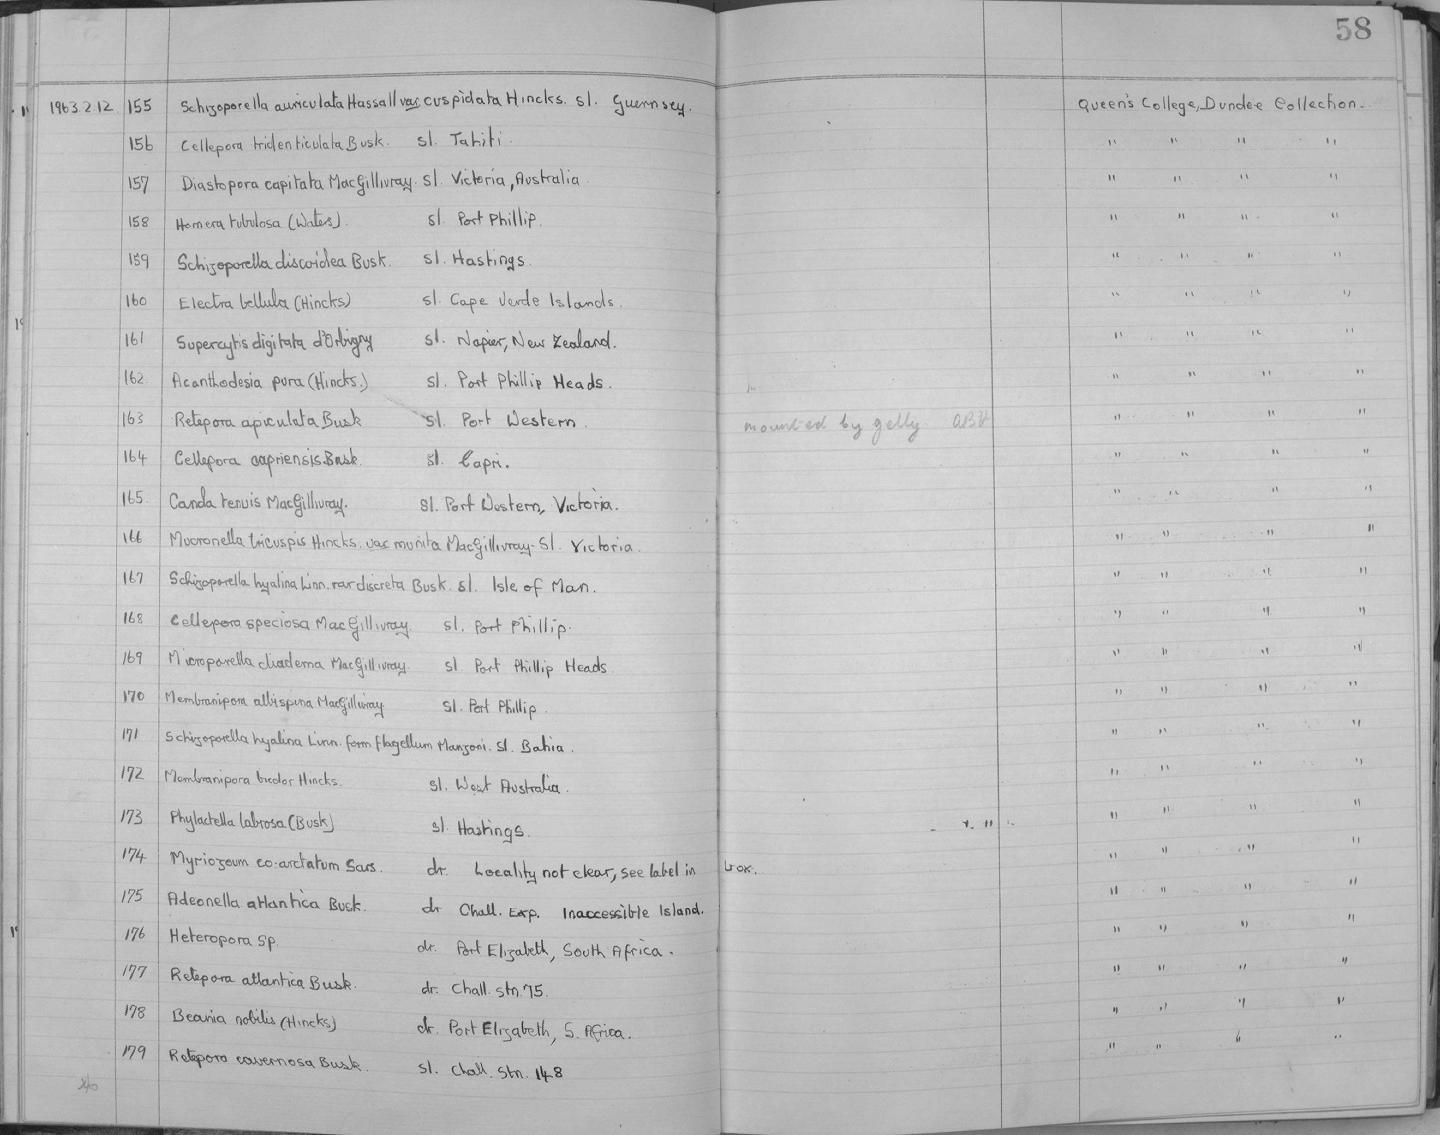 58
1963.2.12 155 Schizoporella auriculata Hassall var cuspidata Hincks. sl. Guernsey. Queen's College, Dundee Collection.
156 Cellepora tridenticulata Busk. sl. Tahiti. " " " "
157 Diastopora capitata MacGillivray. sl. Victoria, Australia. " " " "
158 Hornera tubulosa (Waters). sl. Port Phillip. " " " "
159 Schizoporella discoidea Busk. sl. Hastings. " " " "
160 Electra bellula (Hincks) sl. Cape Verde Islands. " " " "
161 Supercytis digitata d'Orbigny sl. Napier, New Zealand. " " " "
162 Acanthodesia pura (Hincks.) sl. Port Phillip Heads. " " " "
163 Retepora apiculata Busk sl. Port Western. mounted by gelly " " " "
164 Cellepora capriensis Busk. sl. Capri. " " " "
165 Canda tenuis MacGillivray. sl. Port Western, Victoria. " " " "
166 Mucronella tricuspis Hincks. var munita MacGillivray. Sl. Victoria. " " " "
167 Schizoporella hyalina Linn. var discreta Busk. sl. Isle of Man. " " " "
168 Cellepora speciosa MacGillivray. sl. Port Phillip. " " " "
169 Microporella diadema MacGillivray. sl. Port Phillip Heads " " " "
170 Membranipora albispina MacGillivray sl. Port Phillip. " " " "
171 Schizoporella hyalina Linn. form flagellum Manzoni. sl. Bahia. " " " "
172 Membranipora bicolor Hincks. sl. West Australia. " " " "
173 Phylactella labrosa (Busk) sl. Hastings. " " " "
174 Myriozoum co-arctatum Sars. dr. Locality not clear, see label in box. " " " "
175 Adeonella atlantica Busk. dr Chall. Exp. Inaccessible Island. " " " "
176 Heteropora sp. dr. Port Elizabeth, South Africa. " " " "
177 Retepora atlantica Busk. dr. Chall. Stn. 75. " " " "
178 Beania nobilis (Hincks) dr. Port Elizabeth, S. Africa. " " " "
179 Retepora cavernosa Busk. sl. Chall. Stn. 148 " " " "